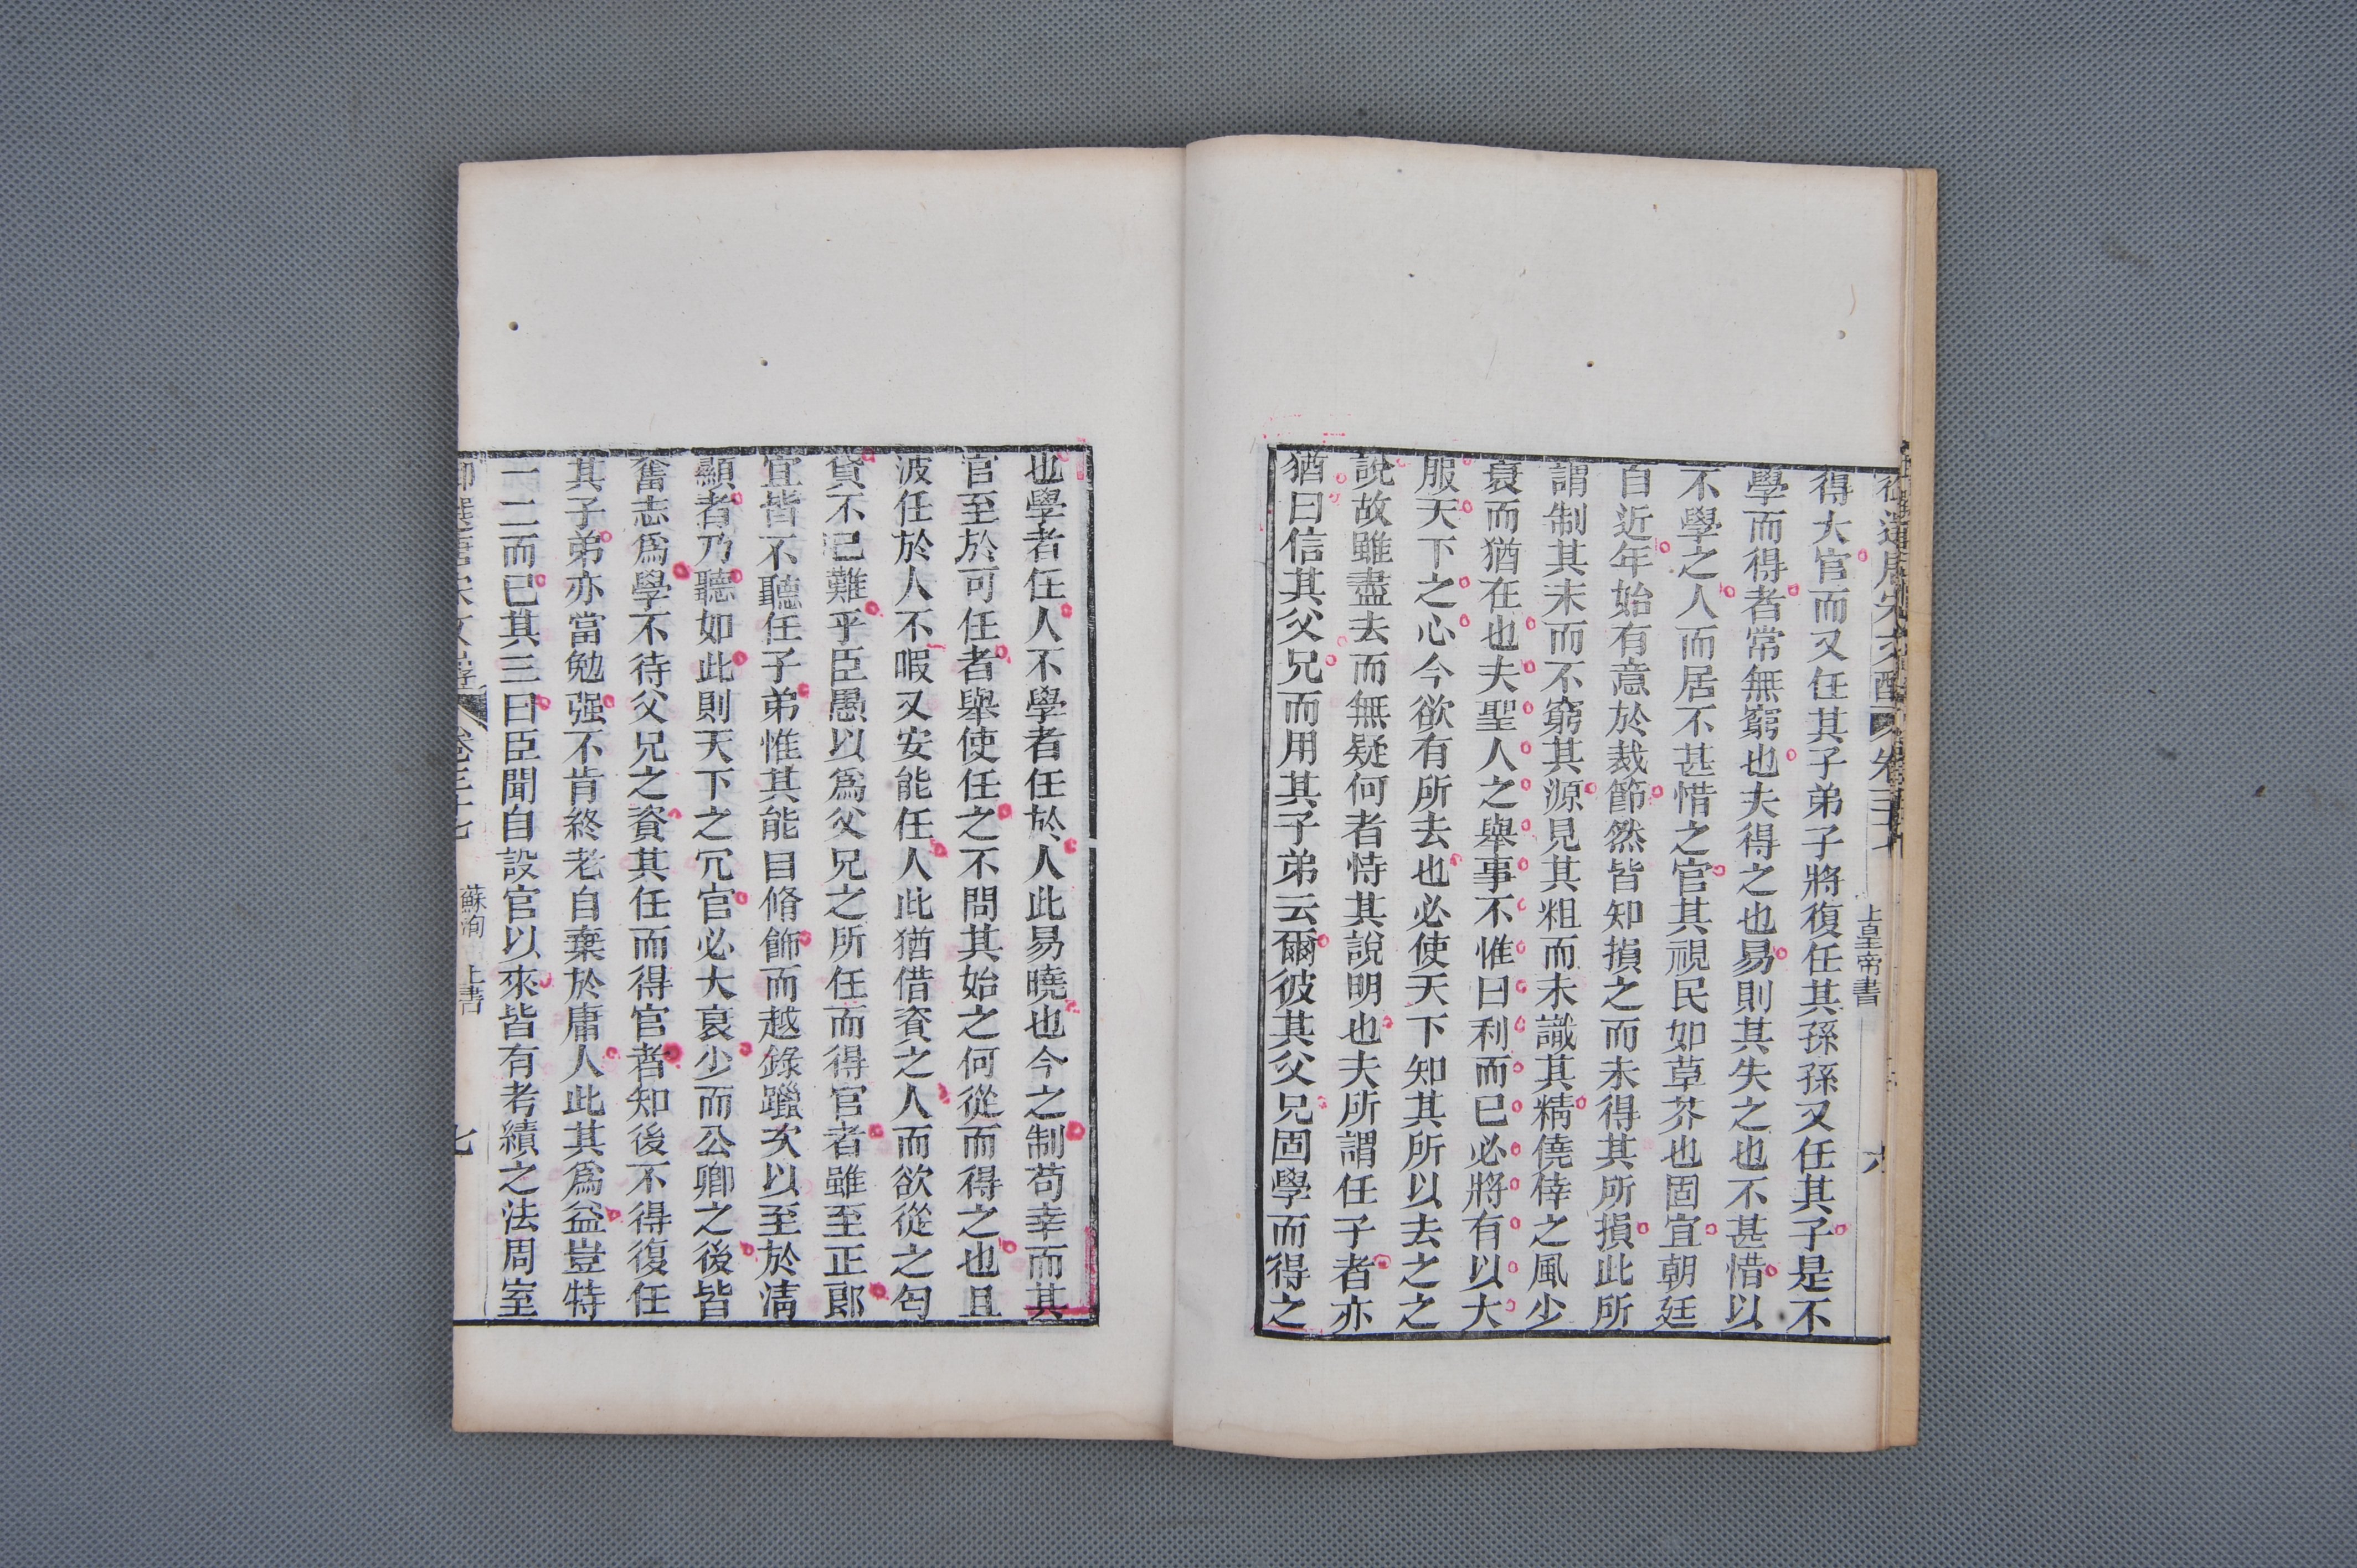 御選唐宋文醇 卷三十七
上皇帝書
六
得大官而又任其子弟子將復任其孫孫又任其子是不
學而得者常無窮也夫得之也易則其失之也不甚惜以
不學之人而居不甚惜之官其視民如草芥也固宜朝廷
自近年始有意於裁節然皆知損之而未得其所損此所
謂制其末而不窮其源見其粗而未識其精僥倖之風少
衰而猶在也夫聖人之舉事不惟曰利而已必將有以大
服天下之心今欲有所去也必使天下知其所以去之之
說故雖盡去而無疑何者恃其說明也夫所謂任子者亦
猶曰信其父兄而用其子弟云爾彼其父兄固學而得之
也學者任人不學者任於人此易曉也今之制苟幸而其
官至於可任者舉使任之不問其始之何從而得之也且
彼任於人不暇又安能任人此猶借資之人而欲從之匄
貸不已難乎臣愚以爲父兄之所任而得官者雖至正郎
宜皆不聽任子弟惟其能自脩飾而越錄躐次以至於淸
顯者乃聽如此則天下之冗官必大衰少而公卿之後皆
奮志爲學不待父兄之資其任而得官者知後不得復任
其子弟亦當勉强不肯終老自棄於庸人此其爲益豈特
一二而已其三曰臣聞自設官以來皆有考績之法周室
御選唐宋文醇 卷三十七
蘇洵 上書
七